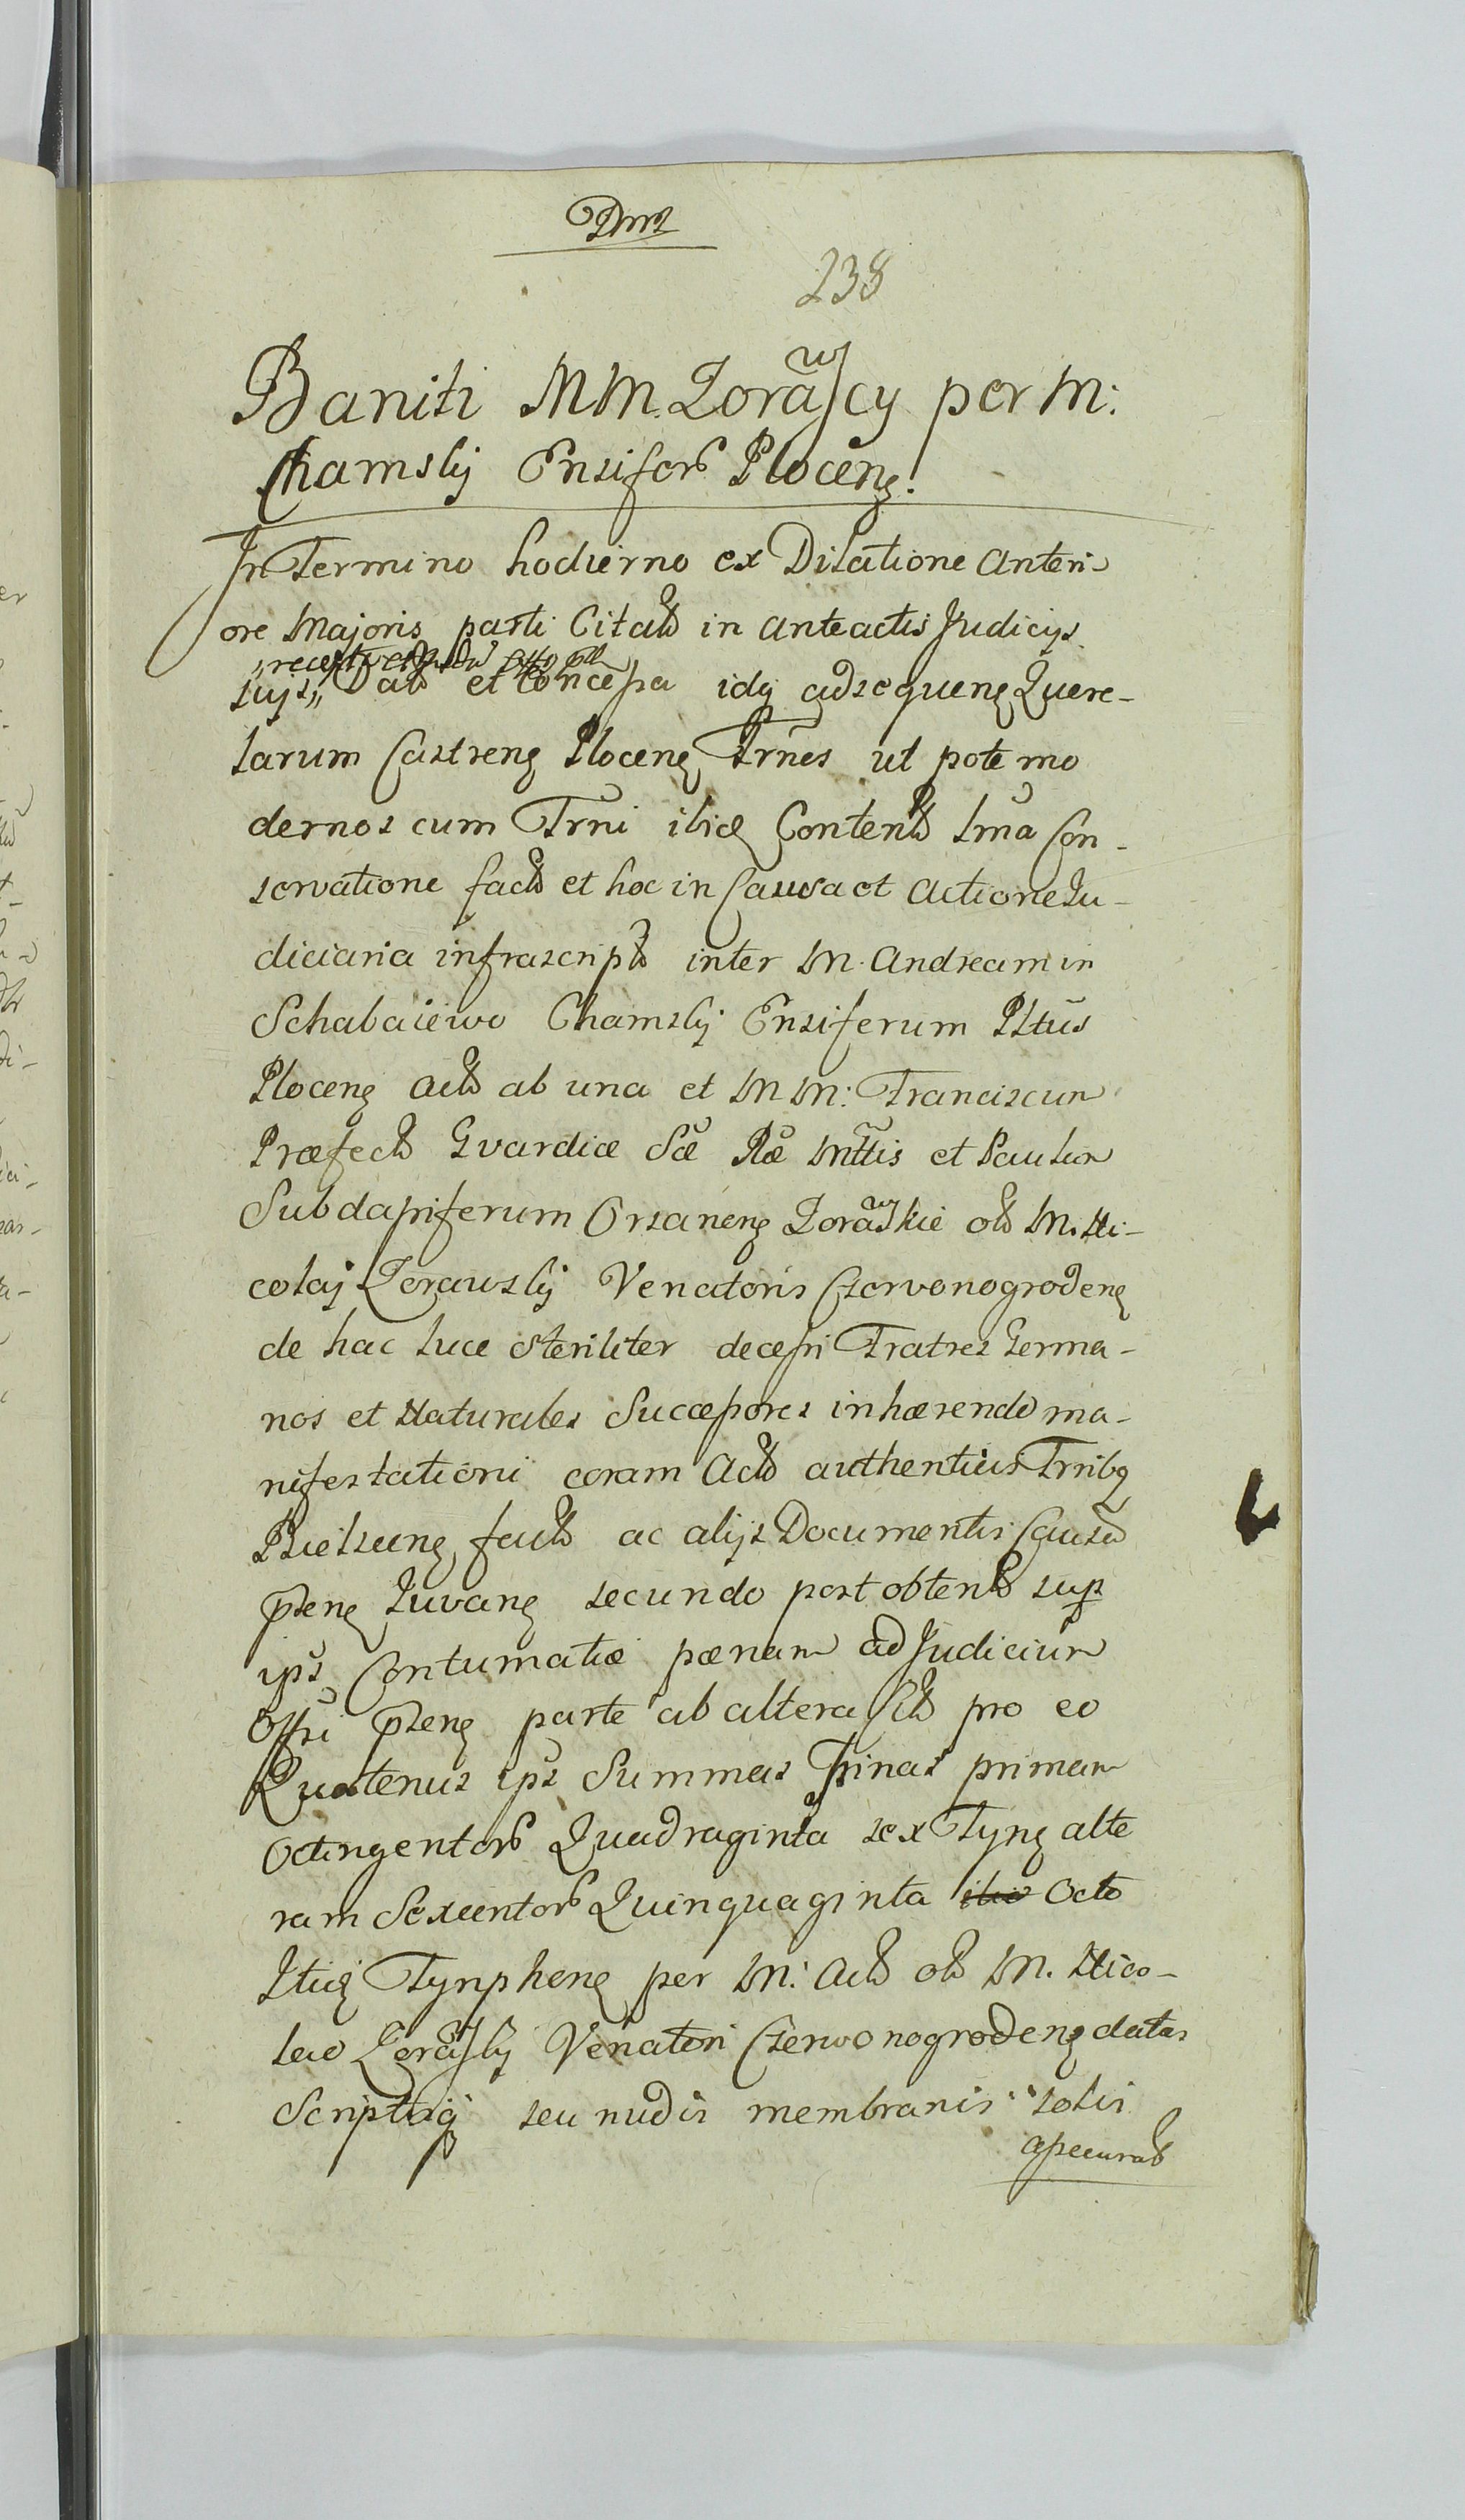 238
Baniti MM. Zorawscy per M:
Chamskij Ensifer Plocens.
In Termino hodierno ex Dilatione Anteri-
ore Majoris parti Citat in anteactis Judicijs
suijs, Dat et Concessa idq adsequens Quere-
larum Castrens Plocens Trnes ut pote mo
dernos cum Trni ibid Content Lma Con-
servatione fact et hoc in Causa et Actione Ju-
diciaria infrascript inter M. Andream in
Schabaiewo Chamskij Ensiferum Pltus
Plocens Act ab una et MM: Franciscum
Præfect Gvardiæ Sæ Ræ Mttis et Paulum
Subdapiferum Orsanens Zorawskie olt M. Ni-
colaj Zorawskij Venatoris Czervonogrodens
de hac luce steriliter decessi Fratres Germa-
nos et Naturales Successores inhærendo ma-
nifestationi coram Act authenticis Trnibq
Bielscens fact ac alijs Documentis Causam
pstens Juvans secundo post obtent sup
ips Contumatiæ pænam ad Judicium
Offsi pstens parte ab altera Cit pro eo
Quatenus ips Summas binas primam
Octingentor Quadraginta sex Tyns alte
ram Sexcentor Quinquaginta Octo
Itidq Tynphens per M: Act olt M. Nico-
lao Zorawskij Venatori Czerwonogrodens datas
Scriptisq seu nudis membranis solis
assecurat